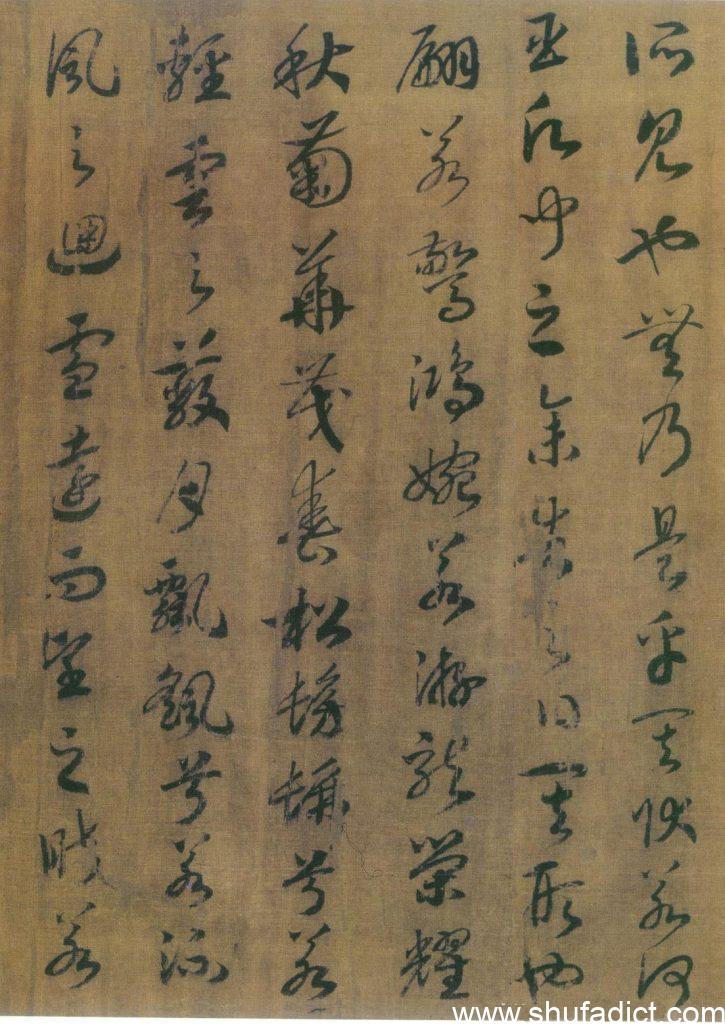 所見也無乃是乎其狀若何
臣願聞之余告之曰其形也
翩若驚鴻婉若游龍榮耀
秋菊華茂春松髣髴兮若
輕雲之蔽月飄颻兮若流
風之迴雪遠而望之皎若
www.shufadict.com